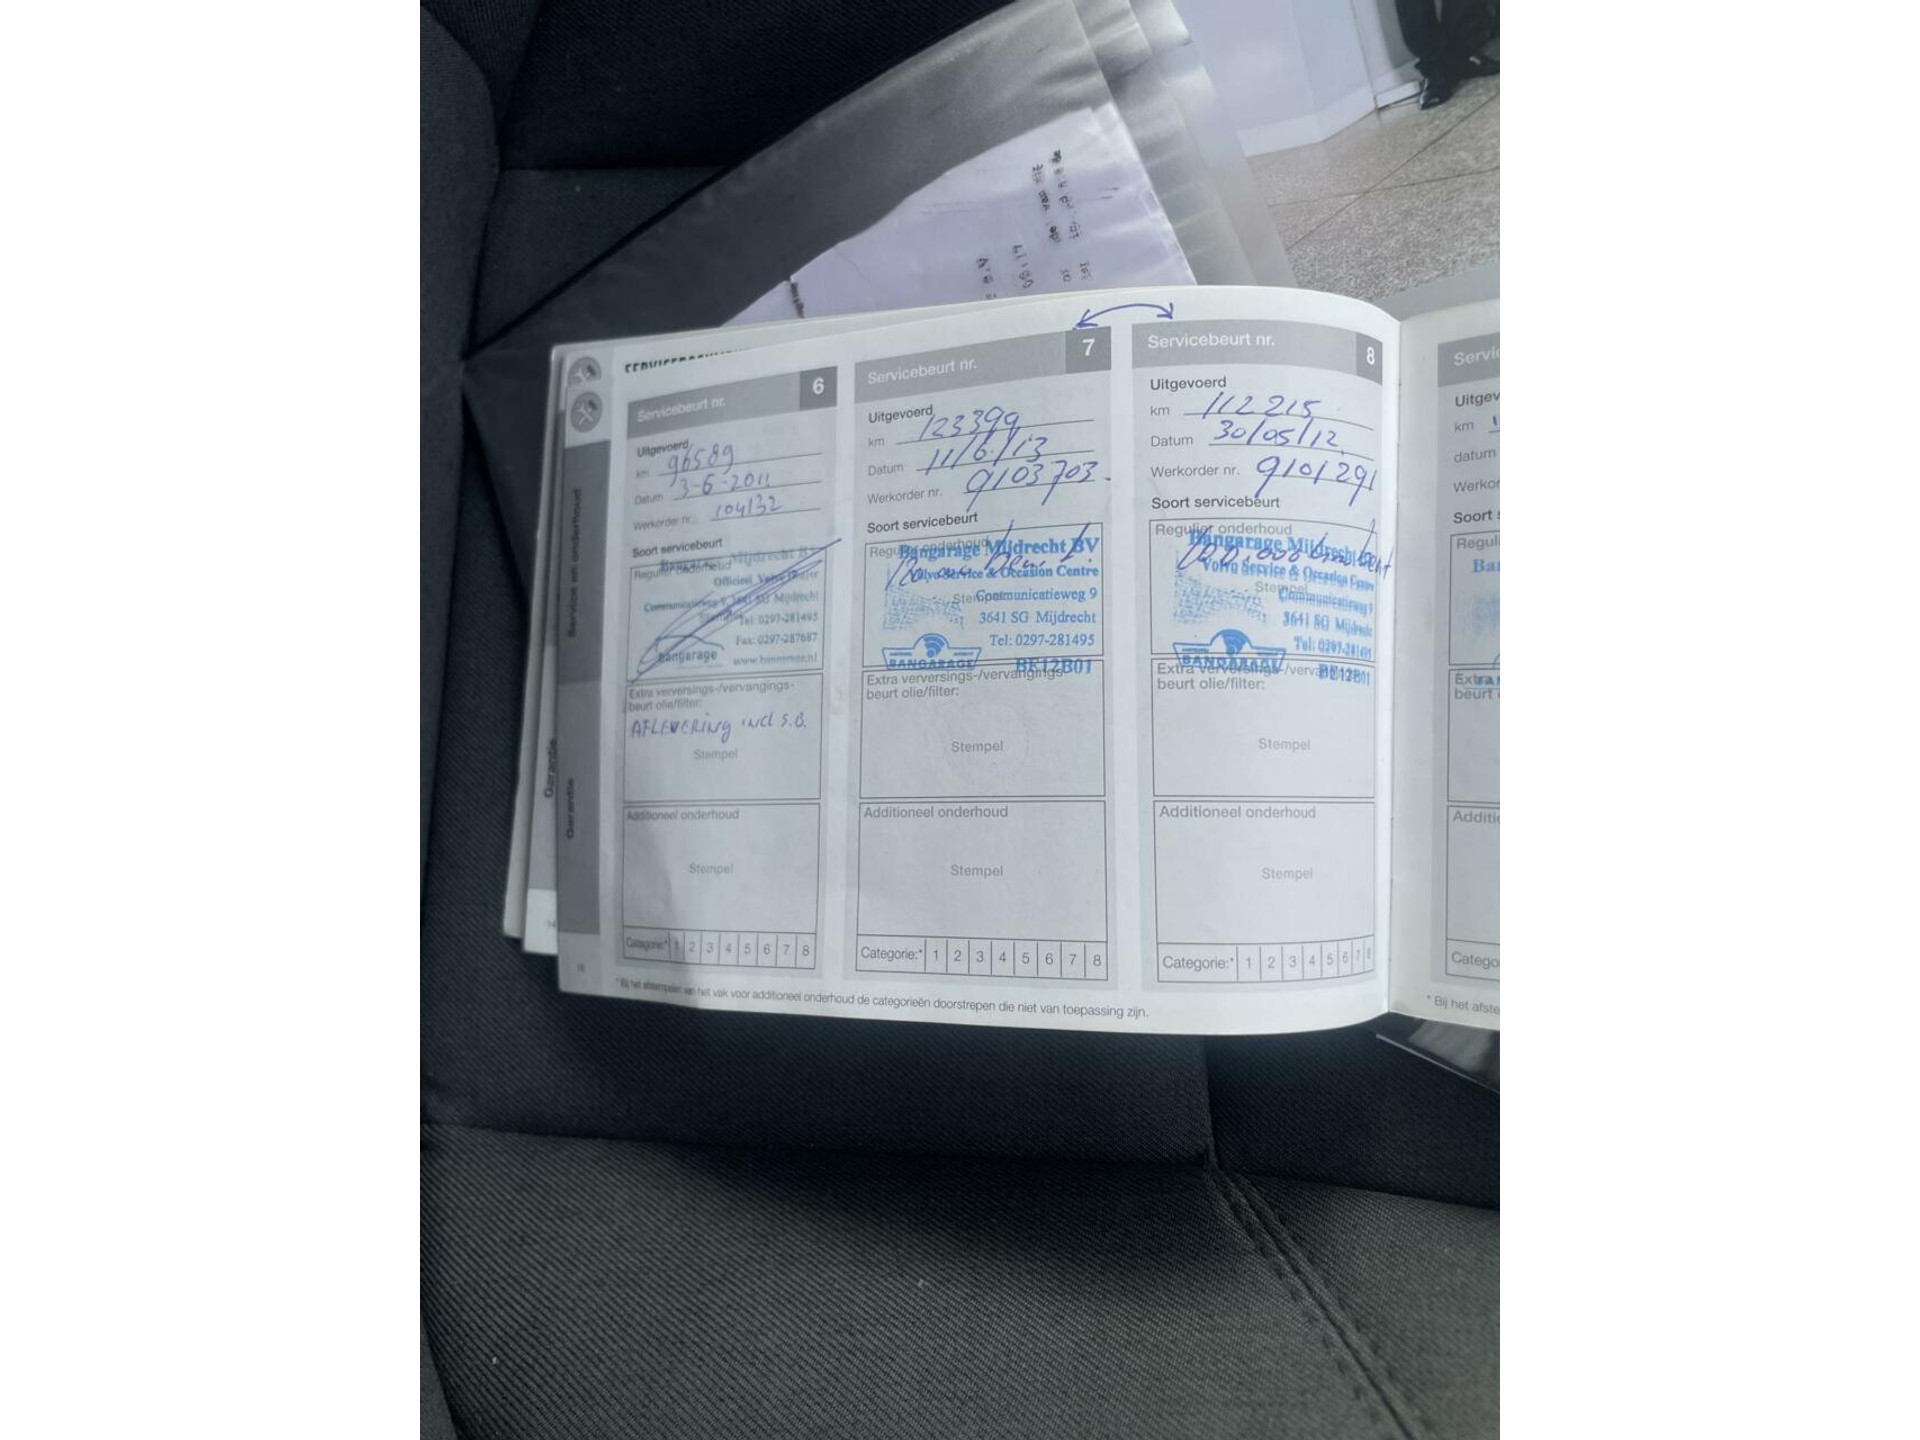 Service en onderhoud
Garantie
Garantie
Servicebeurt nr. 6
Uitgevoerd
km 96589
Datum 3-6-2011
Werkorder nr. 104132
Soort servicebeurt
Regulier onderhoud
Mijdrecht BV
Officieel Volvo Dealer
Communicatieweg 9, 3641 SG Mijdrecht
Stempel Tel: 0297-281495
Fax: 0297-287687
bangarage
Extra verversings-/vervangings-
beurt olie/filter:
AFLEVERING incl S.B.
Stempel
Additioneel onderhoud
Stempel
Categorie:* 1 2 3 4 5 6 7 8
Servicebeurt nr. 7
Uitgevoerd
km 123399
Datum 11/6/13
Werkorder nr. 9103703
Soort servicebeurt
Regulier onderhoud
Bangarage Mijdrecht BV
Volvo Service & Occasion Centre
Stempel
Communicatieweg 9
3641 SG Mijdrecht
Tel: 0297-281495
BANGARAGE BE12B01
Extra verversings-/vervangings-
beurt olie/filter:
Stempel
Additioneel onderhoud
Stempel
Categorie:* 1 2 3 4 5 6 7 8
Servicebeurt nr. 8
Uitgevoerd
km 112215
Datum 30/05/12
Werkorder nr. 9101291
Soort servicebeurt
Regulier onderhoud
Bangarage Mijdrecht
Volvo Service & Occasion Centre
Stempel
Communicatieweg 9
3641 SG Mijdrecht
Tel: 0297-281495
BANGARAGE BE12B01
Extra verversings-/
beurt olie/filter:
Stempel
Additioneel onderhoud
Stempel
Categorie:* 1 2 3 4 5 6 7 8
* Bij het afstempelen van het vak voor additioneel onderhoud de categorieën doorstrepen die niet van toepassing zijn.
Servic
Uitgev
km
datum
Werko
Soort
Reguli
Ba
Extra
beurt
Additi
Catego
* Bij het afste